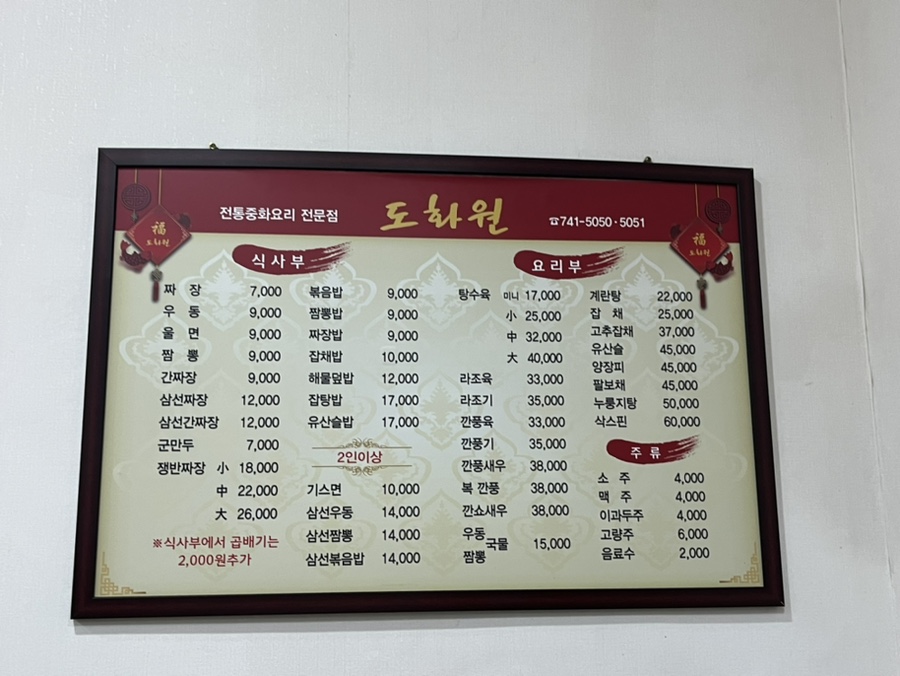 전통중화요리 전문점
도화원
☎741-5050·5051
福
도화원
福
도화원
식사부
짜 장 7,000
우 동 9,000
울 면 9,000
짬 뽕 9,000
간짜장 9,000
삼선짜장 12,000
삼선간짜장 12,000
군만두 7,000
쟁반짜장 小 18,000
中 22,000
大 26,000
※식사부에서 곱배기는
2,000원추가
볶음밥 9,000
짬뽕밥 9,000
짜장밥 9,000
잡채밥 10,000
해물덮밥 12,000
잡탕밥 17,000
유산슬밥 17,000
2인이상
기스면 10,000
삼선우동 14,000
삼선짬뽕 14,000
삼선볶음밥 14,000
요리부
탕수육 미니 17,000
小 25,000
中 32,000
大 40,000
라조육 33,000
라조기 35,000
깐풍육 33,000
깐풍기 35,000
깐풍새우 38,000
복 깐풍 38,000
깐쇼새우 38,000
우동
짬뽕 국물 15,000
계란탕 22,000
잡 채 25,000
고추잡채 37,000
유산슬 45,000
양장피 45,000
팔보채 45,000
누룽지탕 50,000
삭스핀 60,000
주류
소 주 4,000
맥 주 4,000
이과두주 4,000
고량주 6,000
음료수 2,000